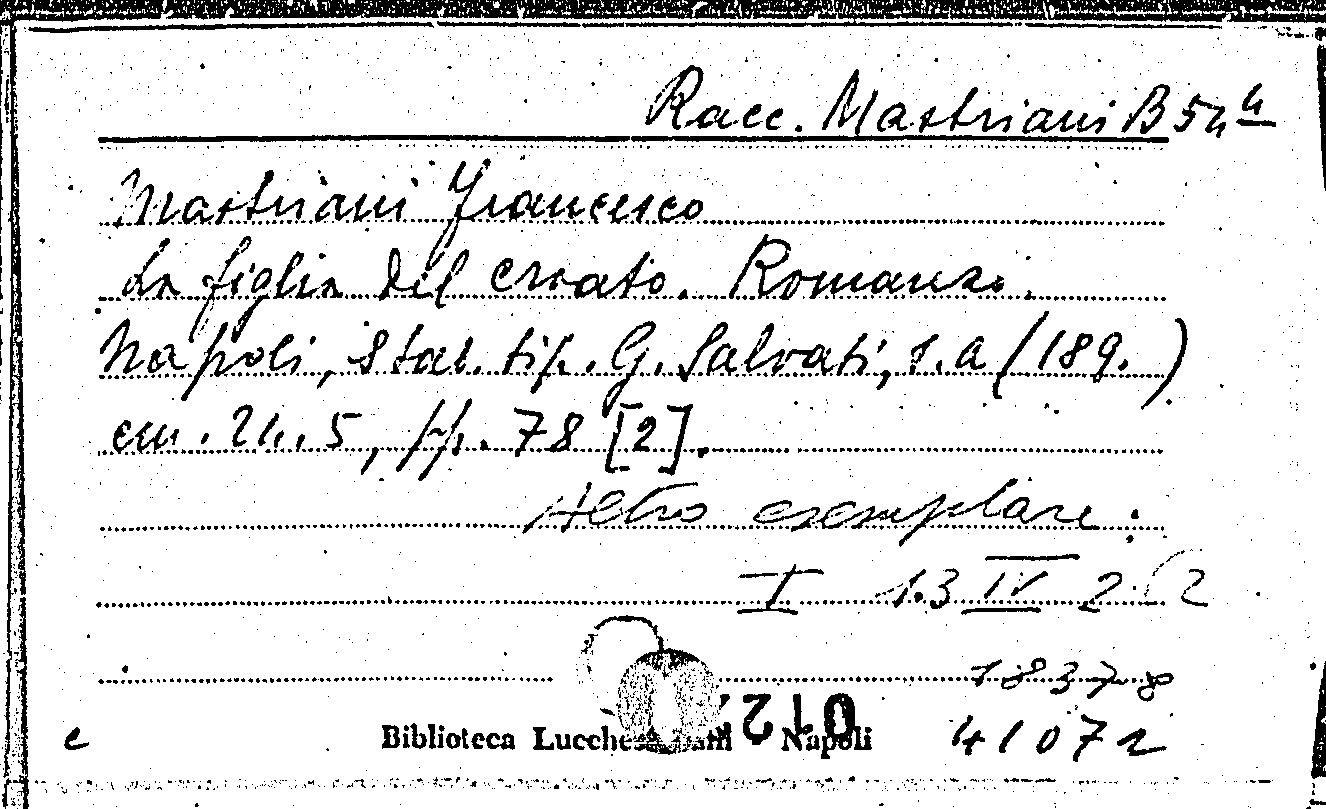 Racc. Mastriani B 54 4
Mastriani Francesco
La figlia del croato. Romanzo.
Napoli, Stab. tip. G. Salvati, s.a (189.)
cm. 24.5, pp. 78 [2].
Altro esemplare:
I 1.3 IV 2 (2
18378
Biblioteca Napoli
41072
c